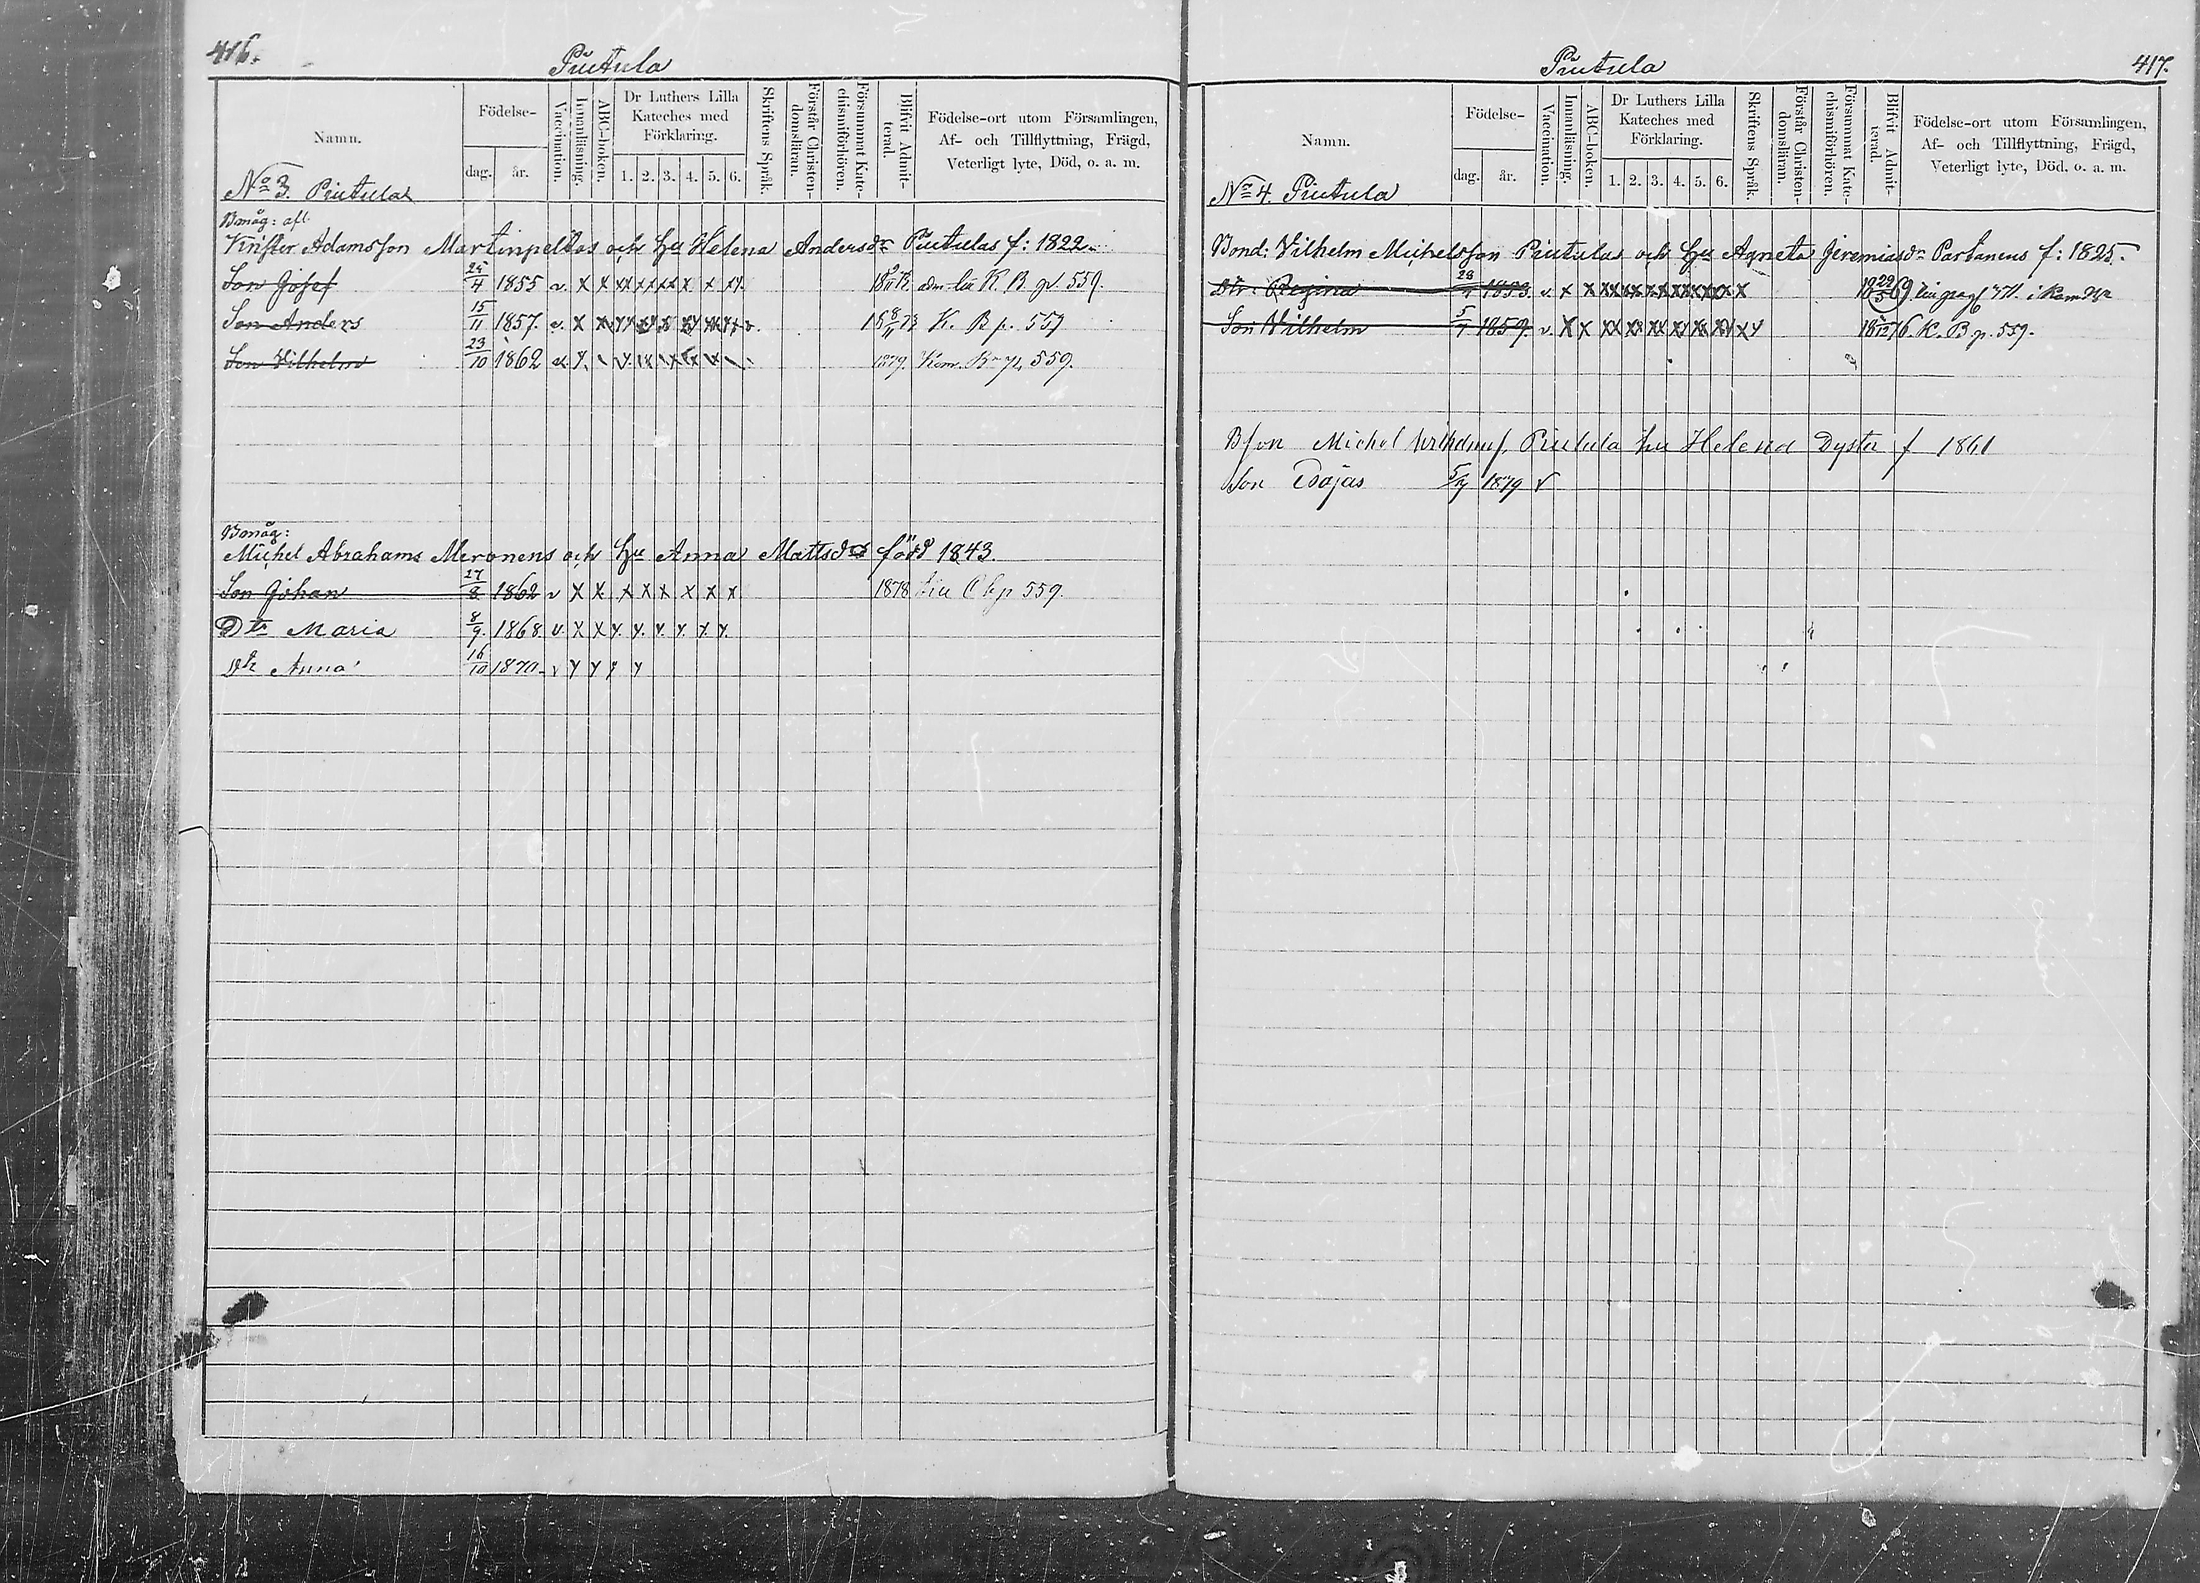 416.
Piutula
Namn.
Födelse-
dag.
år.
Vaccination.
Innanläsning.
ABC-boken.
Dr Luthers Lilla
Kateches med
Förklaring.
1. 2. 3. 4. 5. 6.
Skriftens Språk.
Förstår Christen-
domsläran.
Försummat Kate-
chismiförhören.
Blifvit Admit-
terad.
Födelse-ort utom Församlingen,
Af- och Tillflyttning, Frägd,
Veterligt lyte, Död, o. a. m.
No 3. Piutula
Bmåg: afl.
Krister Adamsson Martinpeltos och Hu Helena Andersdr Piutulas f: 1822.
Son Josef 25/4 1855 v. x x xx xx xx x x xx K. B p. 559.
Son Anders 15/11 1857. v. x x 18 8/11 73 K. B p. 559
Son Vilhelm 23/10 1862 1879. Kom. B p. 559.
Bmåg:
Michel Abrahams Meronens och Hu Anna Mattsdr född 1843.
Son Johan 27/8 1862 v x x x x x x x x 1878 559.
Dtr Maria 8/9. 1868 v. x x y. y. y. y. y. y.
dtr Anna 16/10 1870 v y y y y
Piutula
417.
Namn.
Födelse-
dag.
år.
Vaccination.
Innanläsning.
ABC-boken.
Dr Luthers Lilla
Kateches med
Förklaring.
1. 2. 3. 4. 5. 6.
Skriftens Språk.
Förstår Christen-
domsläran.
Försummat Kate-
chismiförhören.
Blifvit Admit-
terad.
Födelse-ort utom Församlingen,
Af- och Tillflyttning, Frägd,
Veterligt lyte, Död, o. a. m.
No 4. Piutula
Bond: Vilhelm Michelsson Piutulas och Hu Agneta Jeremiasdr Partanens f: 1825.
Dtr: Regina 1853. v. x x xx xx xx xx xx xx x 18 22/5 69
Son Vilhelm 1859. v. x x xx xx xx xx xx xx x y K. B p. 559.
Bson Michel Piutula hu Helena Dyster f 1861
Son Esajas 1879 v